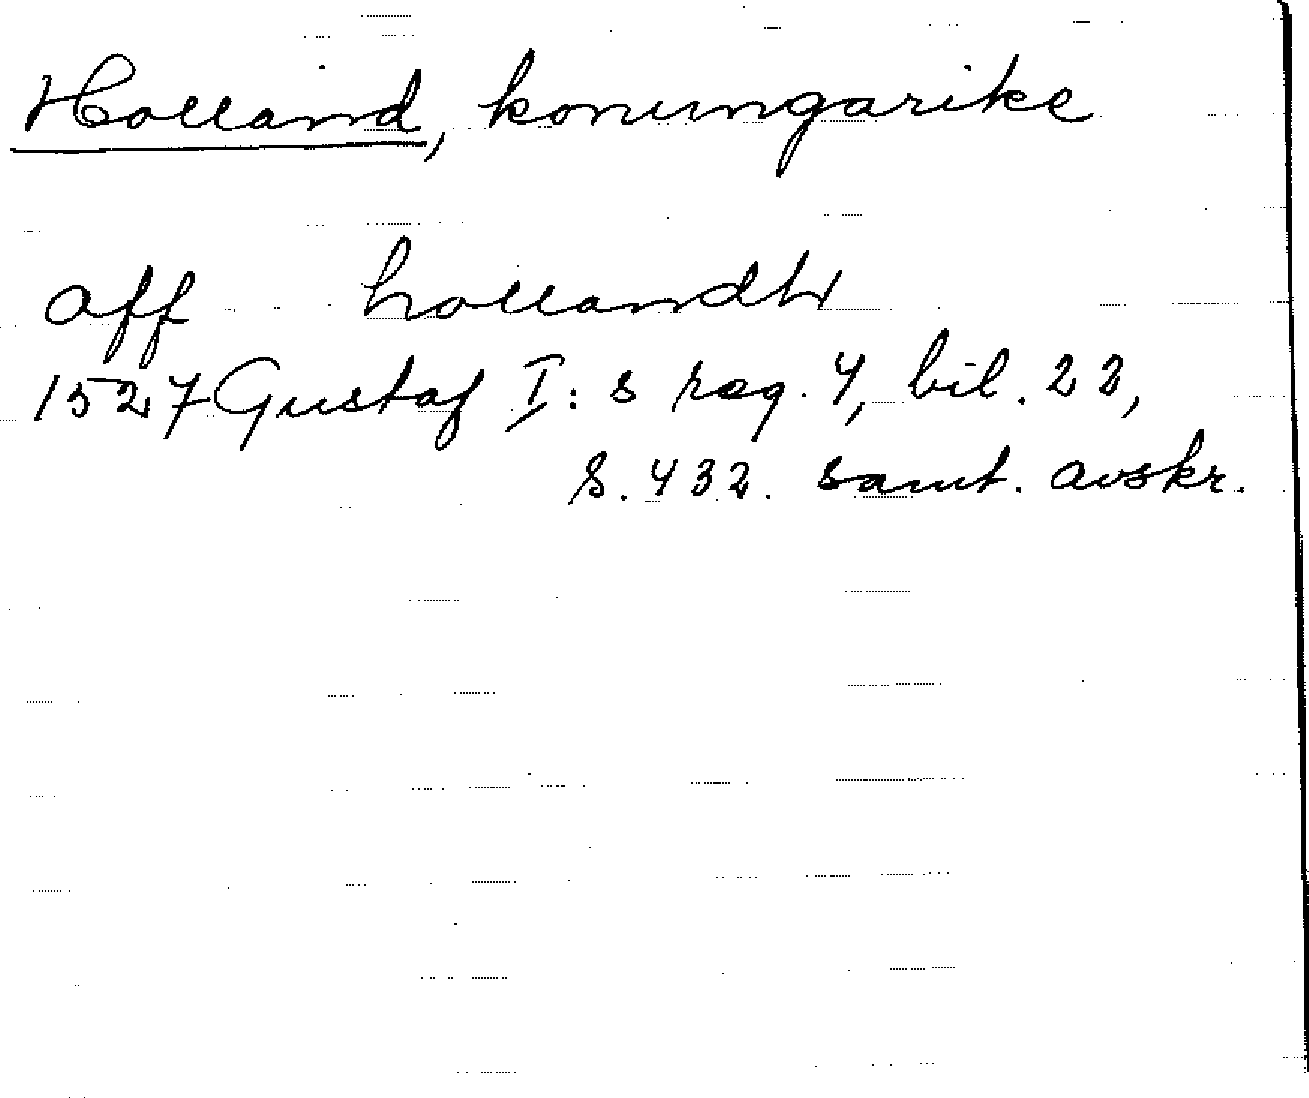 Holland, konungarike
aff hollandh
1527 Gustaf I:s reg. 4, bil. 22,
S. 432. samt. avskr.